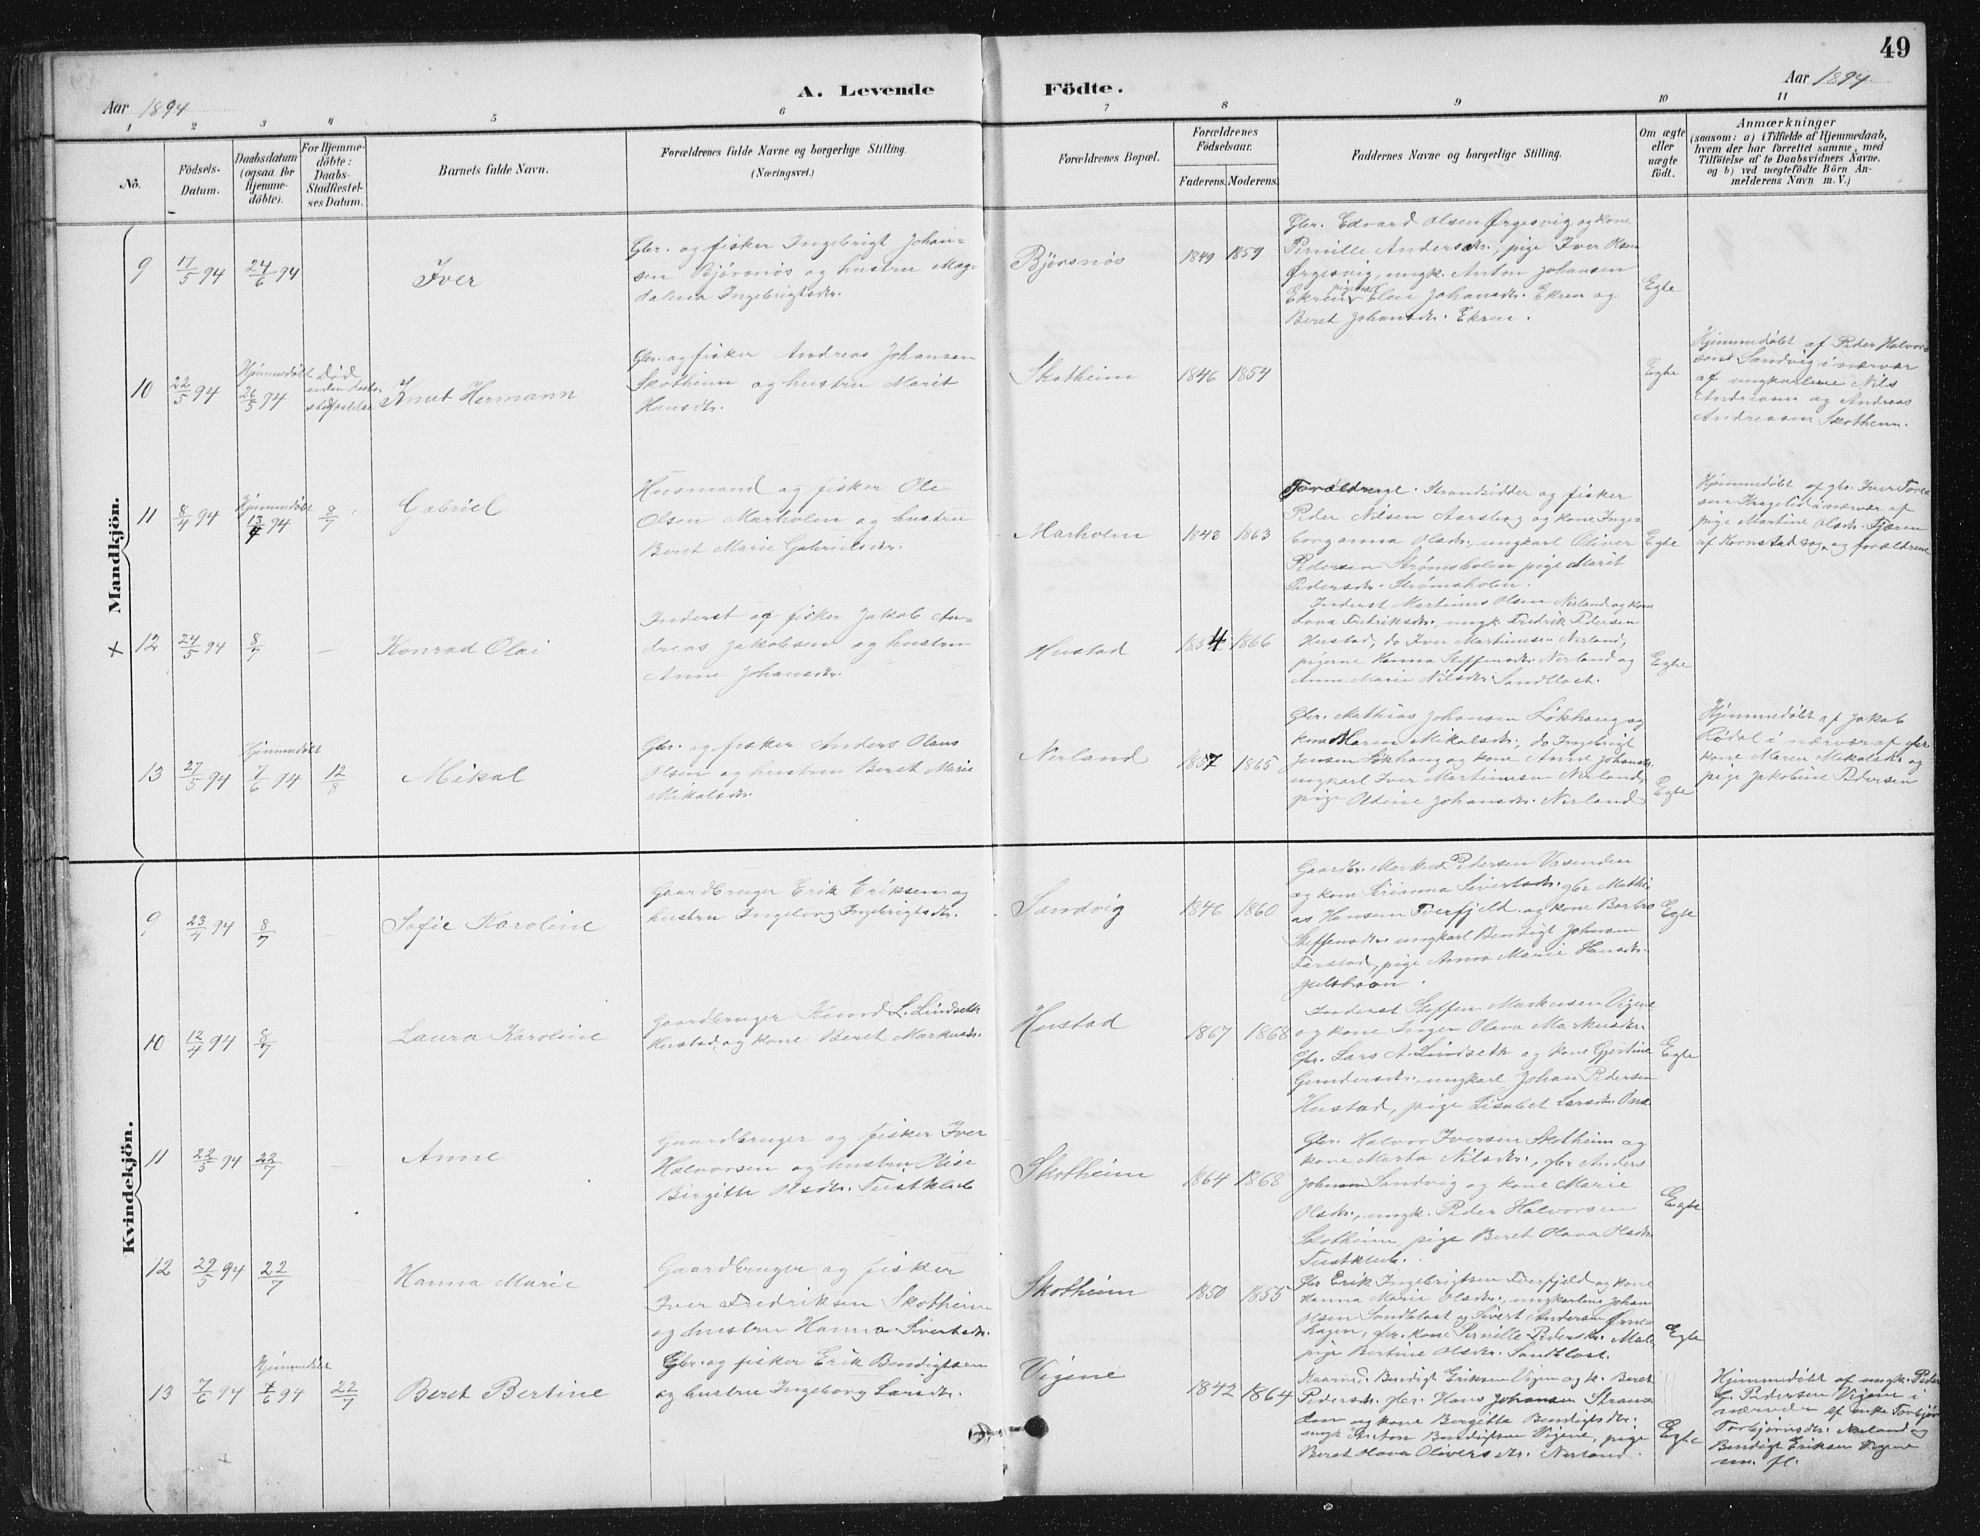 49
Aar 1894
A. Levende
Födte.
Aar 1894
1 2 3 4 5 6 7 8 9 10 11
No.
Födsels-
Datum.
Daabsdatum
(ogsaa for
Hjemme-
döbte).
For Hjemme-
döbte:
Daabs-
Stadfæstel-
ses Datum.
Barnets fulde Navn.
Forældrenes fulde Navne og borgerlige Stilling.
(Næringsvei.)
Forældrenes Bopæl.
Forældrenes
Födselsaar.
Faderens. Moderens.
Faddernes Navne og borgerlige Stilling.
Om ægte
eller
uægte
födt.
Anmærkninger
(saasom: a) i Tilfælde af Hjemmedaab,
hvem der har forrettet samme, med
Tilföielse af to Daabsvidners Navne.
og b) ved uægtefödte Börn An-
melderens Navn m. V.)
Mandkjön.
9
17/5 94
24/6 94
Iver
Gbr. og fisker Ingebrigt Johan=
sen Bjørsnøs og hustru Mag-
dalena Ingebrigtsdtr.
Bjørsnøs
1849 1859
Gbr. Edvard Olsen Ørgesvig og kone
Pernille Andersdtr., pige Iver Olsen
Ørgesvig, ungk. Anton Johansen
Ekren, pigerne Elen Johansdtr. Ekren og
Beret Johansdtr. Ekren.
Egte
10
22/5 94
Hjemmedøbt
26/5 94
Død
uden daabs
stadfæstelse
Knut Hermann
Gbr. og fisker Andreas Johansen
Skotheim og hustru Marit
Hansdtr.
Skotheim
1846 1854
Egte
Hjemmedøbt af Peder Halvor
sen Sandvig i nærvær
af ungkarlene Nils
Andreasen og Andreas
Andreasen Skotheim.
11
8/4 94
Hjemmedøbt
13/4 94
8/7
Gabriel
Husmand og fisker Ole
Olsen Marholm og hustru
Beret Marie Gabrielsdtr.
Marholm
1843 1863
Forældrene. Strandsidder og fisker
Peder Nilsen Aarsbog og kone Inge
borganna Olsdtr., ungkarl Oliver
Pedersen Strømsholm pige Marit
Pedersdtr. Strømsholm.
Egte
Hjemmedøbt af gbr. Iver Tore
sen Kragelid i nærvær af
pige Martine Olsdtr. Fjæren
af Kornstad sog. og forældrene
+ 12
24/5 94
8/7
Konrad Olai
Inderst og fisker Jakob An-
dreas Jakobsen og hustru
Anne Johansdtr.
Hustad
1854 1866
Inderst Martinus Olsen Nerland og kone
Lova Fredriksdtr., ungk. Fredrik Pedersen
Hustad, do Iver Martinusen Nerland,
pigerne Hanna Steffensdtr. Nerland og
Anne Marie Nilsdtr. Sandblost.
Egte
13
27/5 94
Hjemmedøbt
7/6 94
12/8
Mikal
Gbr. og fisker Anders Olaus
Olsen og hustru Beret Marie
Mikalsdtr.
Nerland
1857 1865
Gbr. Mathias Johansen Løkhaug og
kone Maren Mikalsdtr., do Ingebrigt
Jensen Løkhaug og kone Anne Johansdtr.
ungkarl Iver Martinusen Nerland
pige Oldine Johansdtr. Nerland
Egte
Hjemmedøbt af Jakob
Rødal i nærvær af gbr.
kone Maren Mikalsdtr. og
pige Jakobine Pedersen
Kvindekjön.
9
23/4 94
8/7
Sofie Karoline
Gaardbruger Erik Eriksen og
hustru Ingeborg Ingebrigtsdtr.
Sandvig
1846 1860
Gaardbr. Markus Pedersen Vasenden
og kone Serianna Sivertsdtr. gbr Mathi
as Hansen Tverfjeld og kone Barbro
Steffensdtr. ungkarl Bendigt Johnsen
Farstad, pige Anna Marie Hansdtr.
Egte
10
12/4 94
8/7
Laura Karoline
Gaardbruger Knud L. Lindseth
Hustad og kone Beret Markusdtr.
Hustad
1867 1868
Inderst Steffen Markusen Vigene
og kone Inger Olava Markusdtr.
Gbr. Lars A. Lindseth og kone Gjertine
Gundersdtr., ungkarl Johan Pedersen
Hustad, pige Lisabet Larsdtr.
Egte
11
22/5 94
22/7
Anne
Gaardbruger og fisker Iver
Halvorsen og hustru Olise
Birgitte Olsdtr. Tustkleib
Skotheim
1864 1868
Gbr. Halvor Iversen Skotheim og
kone Marta Nilsdtr., gbr Anders
Johnsen Sandvig og kone Marie
Olsdtr., ungk. Peder Halvorsen
Skotheim, pige Beret Olava Olsdtr.
Tustkleib.
Egte
12
29/5 94
22/7
Hanna Marie
Gaardbruger og fisker
Iver Fredriksen Skotheim
og hustru Hanna Sivertsdtr.
Skotheim
1850 1855
Gbr Erik Ingebrigtsen Tverfjeld og kone
Hanna Marie Olsdtr., ungkarlene Johan
Olsen Sandblost og Sivert Andersen Ørne
hagen, gbr. kone Pernille Pedersdtr. Male,
pige Bertine Olsdtr. Sandblost.
Egte
13
7/6 94
Hjemmedøbt
7/6 94
22/7
Beret Bertine
Gbr. og fisker Erik Bendigtsen
og hustru Ingeborg Larsdtr.
Vigene
1842 1864
Kaarmd. Bendigt Eriksen Vigen og k. Beret
Pedersdtr. gbr. Hans Johansen Stran
den og kone Bergitte Bendigtsdtr.
ungk. Anton Bendigtsen Vigene, pige
Beret Olava Oliversdtr. Nerland.
Egte
Hjemmedøbt af ungk. Peder
G. Pedersen Vigene i
nærvær af enke Torbjør
Torbjørnsdtr. Nerland og
Bendigt Eriksen Vigene
m. fl.